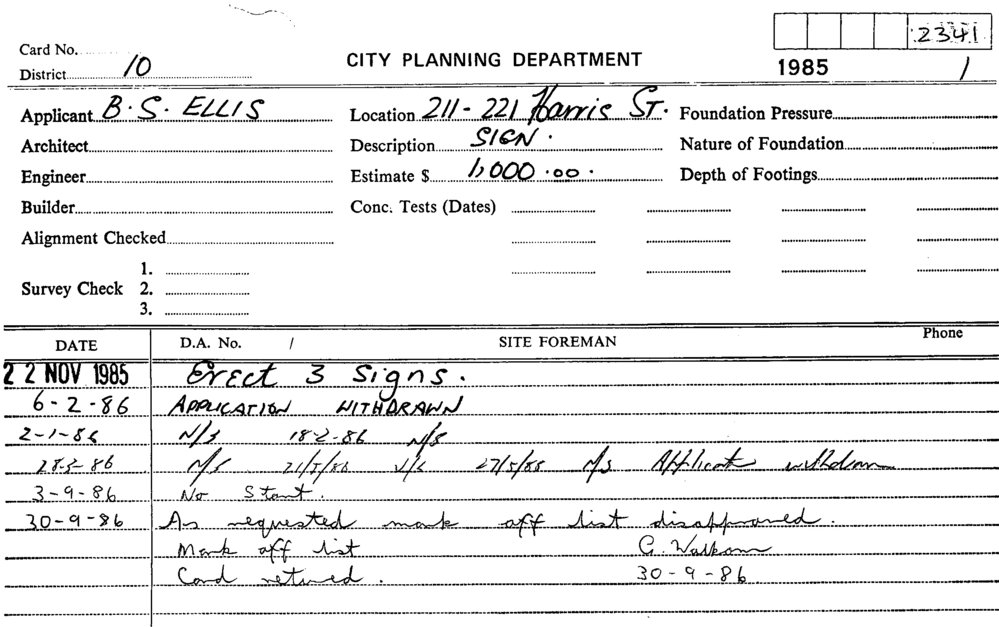 2341
Card No.
CITY PLANNING DEPARTMENT
District 10
1985 /
Applicant B.S. ELLIS Location 211-221 Harris St. Foundation Pressure
Architect Description SIGN. Nature of Foundation
Engineer Estimate $ 1,000.00. Depth of Footings
Builder Conc. Tests (Dates)
Alignment Checked
1.
Survey Check 2.
3.
DATE D.A. No. / SITE FOREMAN Phone
22 NOV 1985 Erect 3 Signs.
6-2-86 APPLICATION WITHDRAWN
2-1-86 N/S 18-2-86 N/S
N/S N/S withdrawn
3-9-86 No Start.
30-9-86 As requested mark off list disapproved.
Mark off list G. Walkom
Card retured. 30-9-86